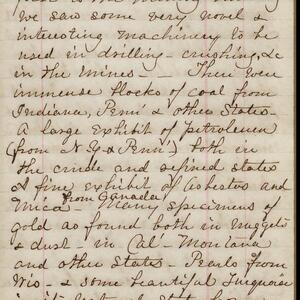 we saw some very novel &
interesting machinery to be
used in drilling - crushing, &c
in the mines - - There were
immense blocks of coal from
Indiana, Penn' & other States -
A large exhibit of petroleum
(from N.Y. & Penn') both in
the crude and refined states
A fine exhibit of Asbestos and
Mica - from Canada Many specimens of
gold as found both in nuggets
& dust - in Cal - Montana
and other States - Pearls from
Wis - & some beautiful Turquoise